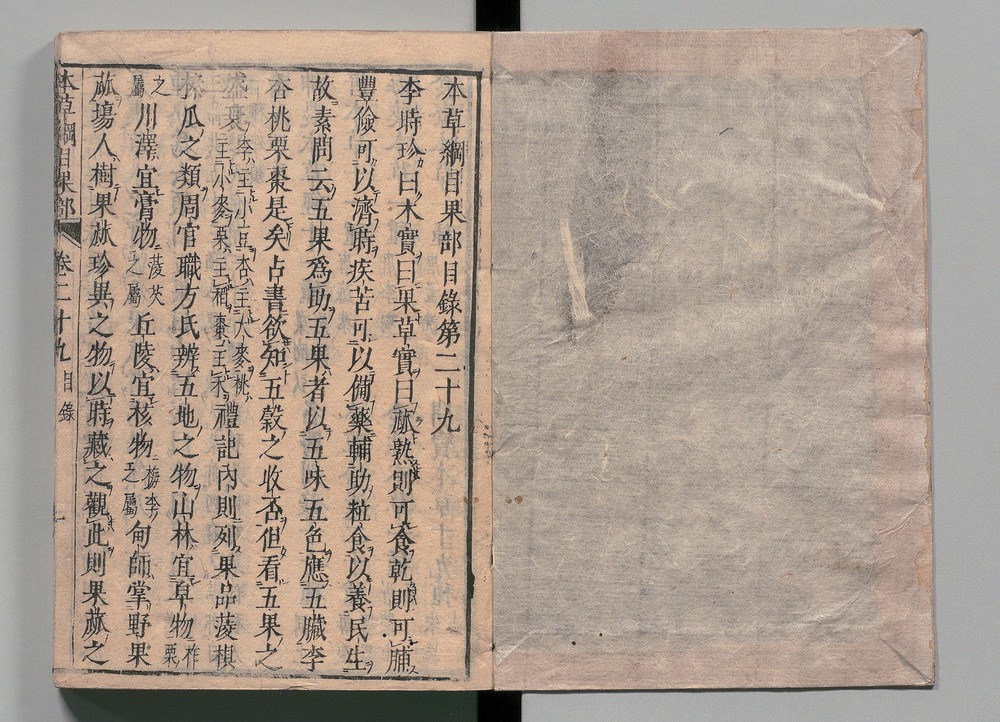 本草綱目果部目錄第二十九
李時珍曰木實曰果草實曰蓏熟則可食乾則可脯
豐儉可以濟時疾苦可以備藥輔助粒食以養民生
故素問云五果爲助五果者以五味五色應五臟李
杏桃栗棗是矣占書欲知五穀之收否但看五果之
盛衰李主小豆杏主大麥桃主小麥栗主稻棗主禾禮記內則列果品菱椇
榛瓜之類周官職方氏辨五地之物山林宜草物柞栗
之屬川澤宜膏物菱芡之屬丘陵宜核物梅李之屬甸師掌野果
蓏場人樹果蓏珍異之物以時藏之觀此則果蓏之
本草綱目果部 卷二十九 目錄 一